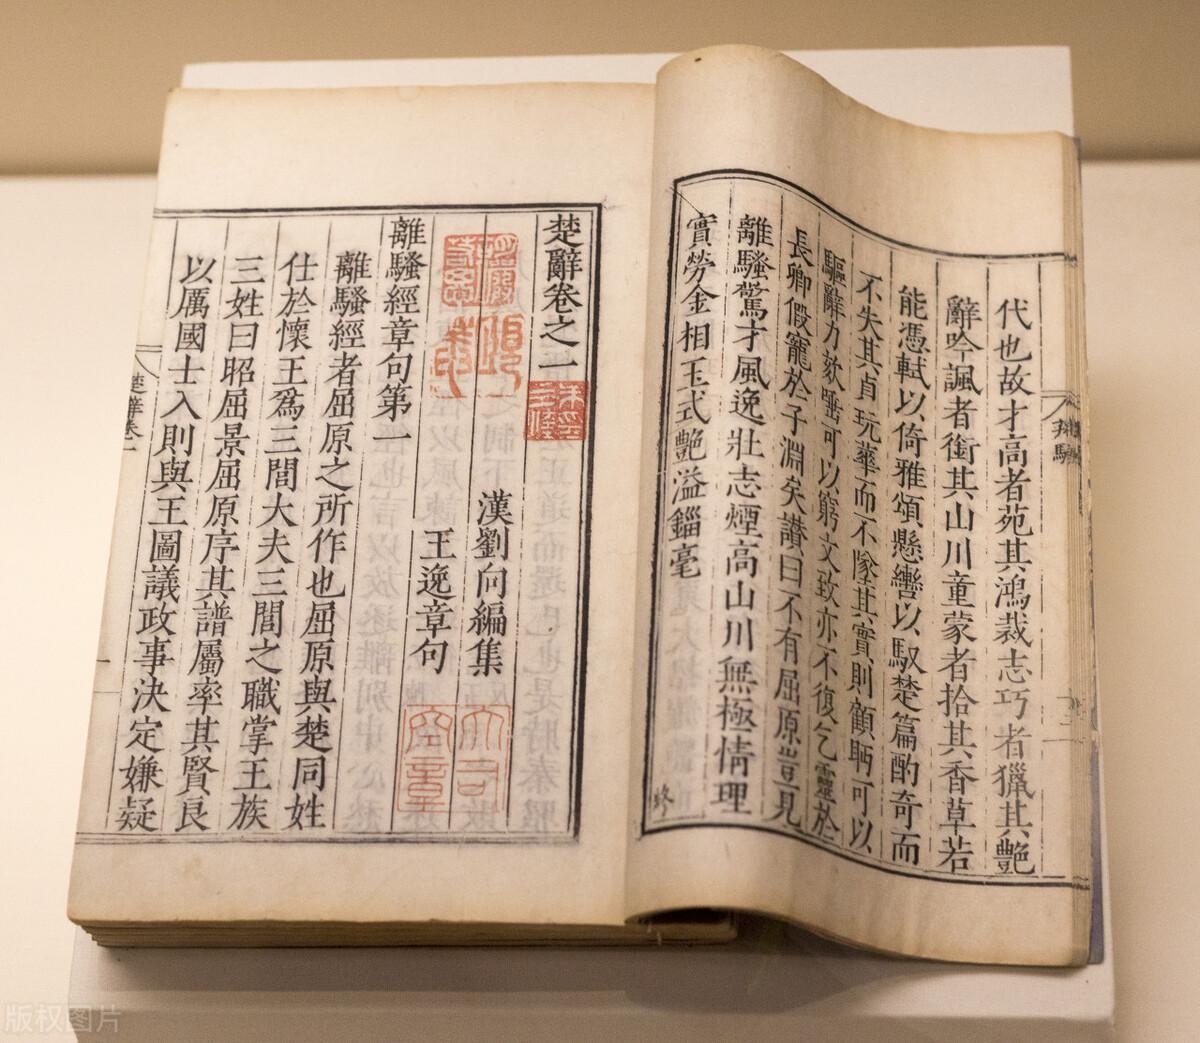 代也故才高者苑其鴻裁志巧者獵其艷
辭吟諷者銜其山川童蒙者拾其香草若
能憑軾以倚雅頌懸轡以馭楚篇酌奇而
不失其貞玩華而不墜其實則顧眄可以
驅辭力欬唾可以窮文致亦不復乞靈於
長卿假寵於子淵矣讃曰不有屈原豈見
離騷驚才風逸壯志煙高山川無極情理
實勞金相玉式艷溢錙毫
終
楚辭卷之一
漢劉向編集
王逸章句
離騷經章句第一
離騷經者屈原之所作也屈原與楚同姓
仕於懷王爲三閭大夫三閭之職掌王族
三姓曰昭屈景屈原序其譜屬率其賢良
以厲國士入則與王圖議政事決定嫌疑
楚辭卷一
版权图片